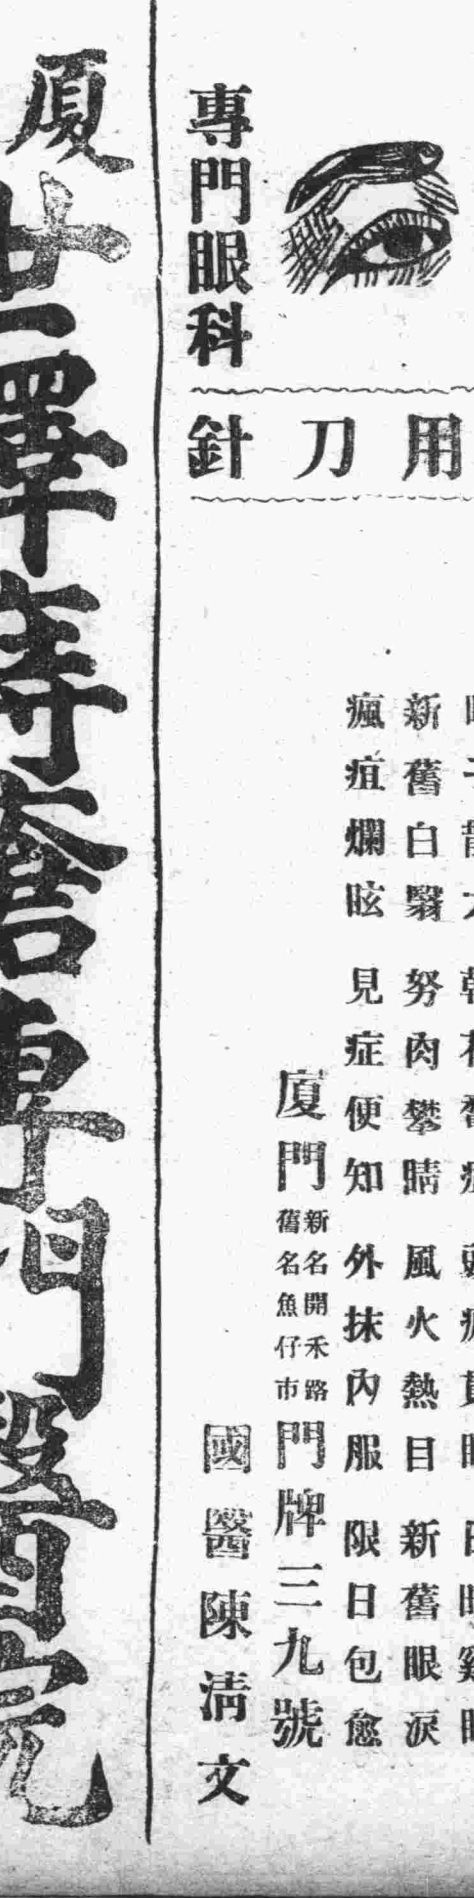 專門眼科
用刀針
新舊白翳 努肉攀睛 風火熱目 新舊眼淚
瘋疽爛眩 見症便知 外抹內服 限日包愈
廈門
新名開禾路
舊名魚仔市
門牌三九號
國醫陳淸文
廈
痔瘡專門醫院